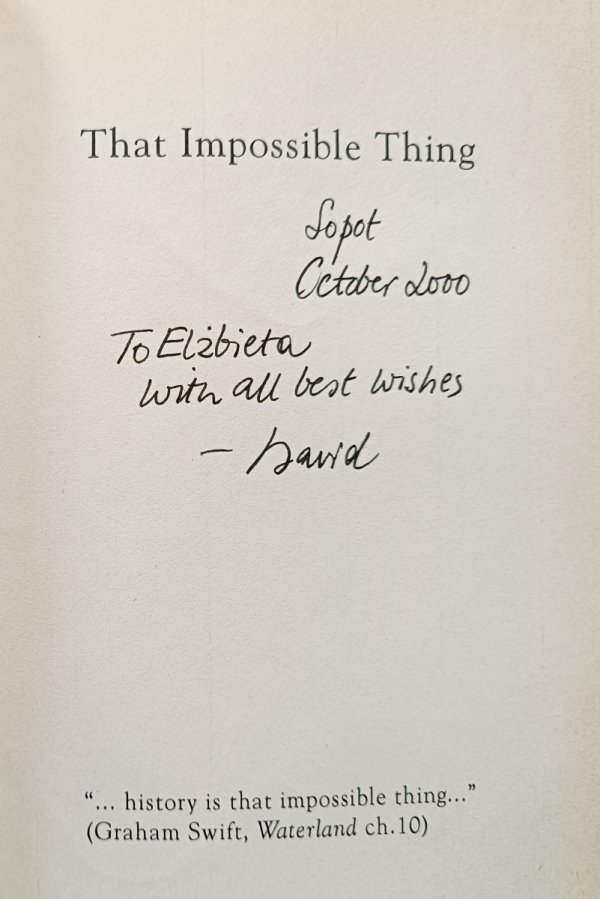 That Impossible Thing
Sopot
October 2000
To Elżbieta
with all best wishes
– David
“... history is that impossible thing...”
(Graham Swift, Waterland ch.10)